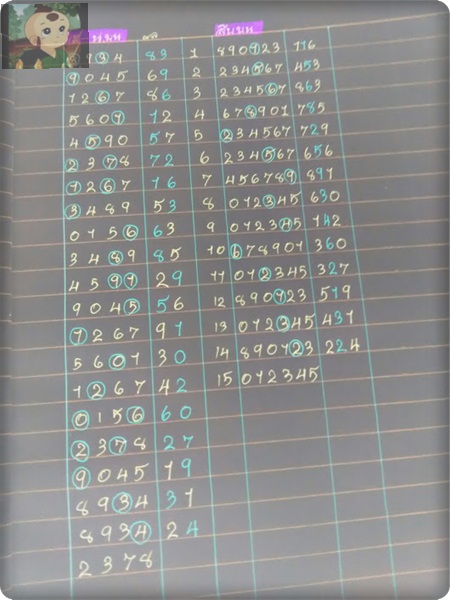 สิบบน
934 83 1 890123 116
9045 69 2 234567 453
1267 86 3 234567 863
5601 12 4 678901 785
4590 57 5 234567 729
2378 72 6 234567 656
1267 16 7 456789 891
3489 53 8 012345 630
0156 63 9 012345 142
3489 85 10 678901 360
4591 29 11 012345 327
9045 56 12 890123 519
1267 91 13 012345 431
5601 30 14 890123 224
1267 42 15 012345
0156 60
2378 27
9045 19
8934 31
8934 24
2378